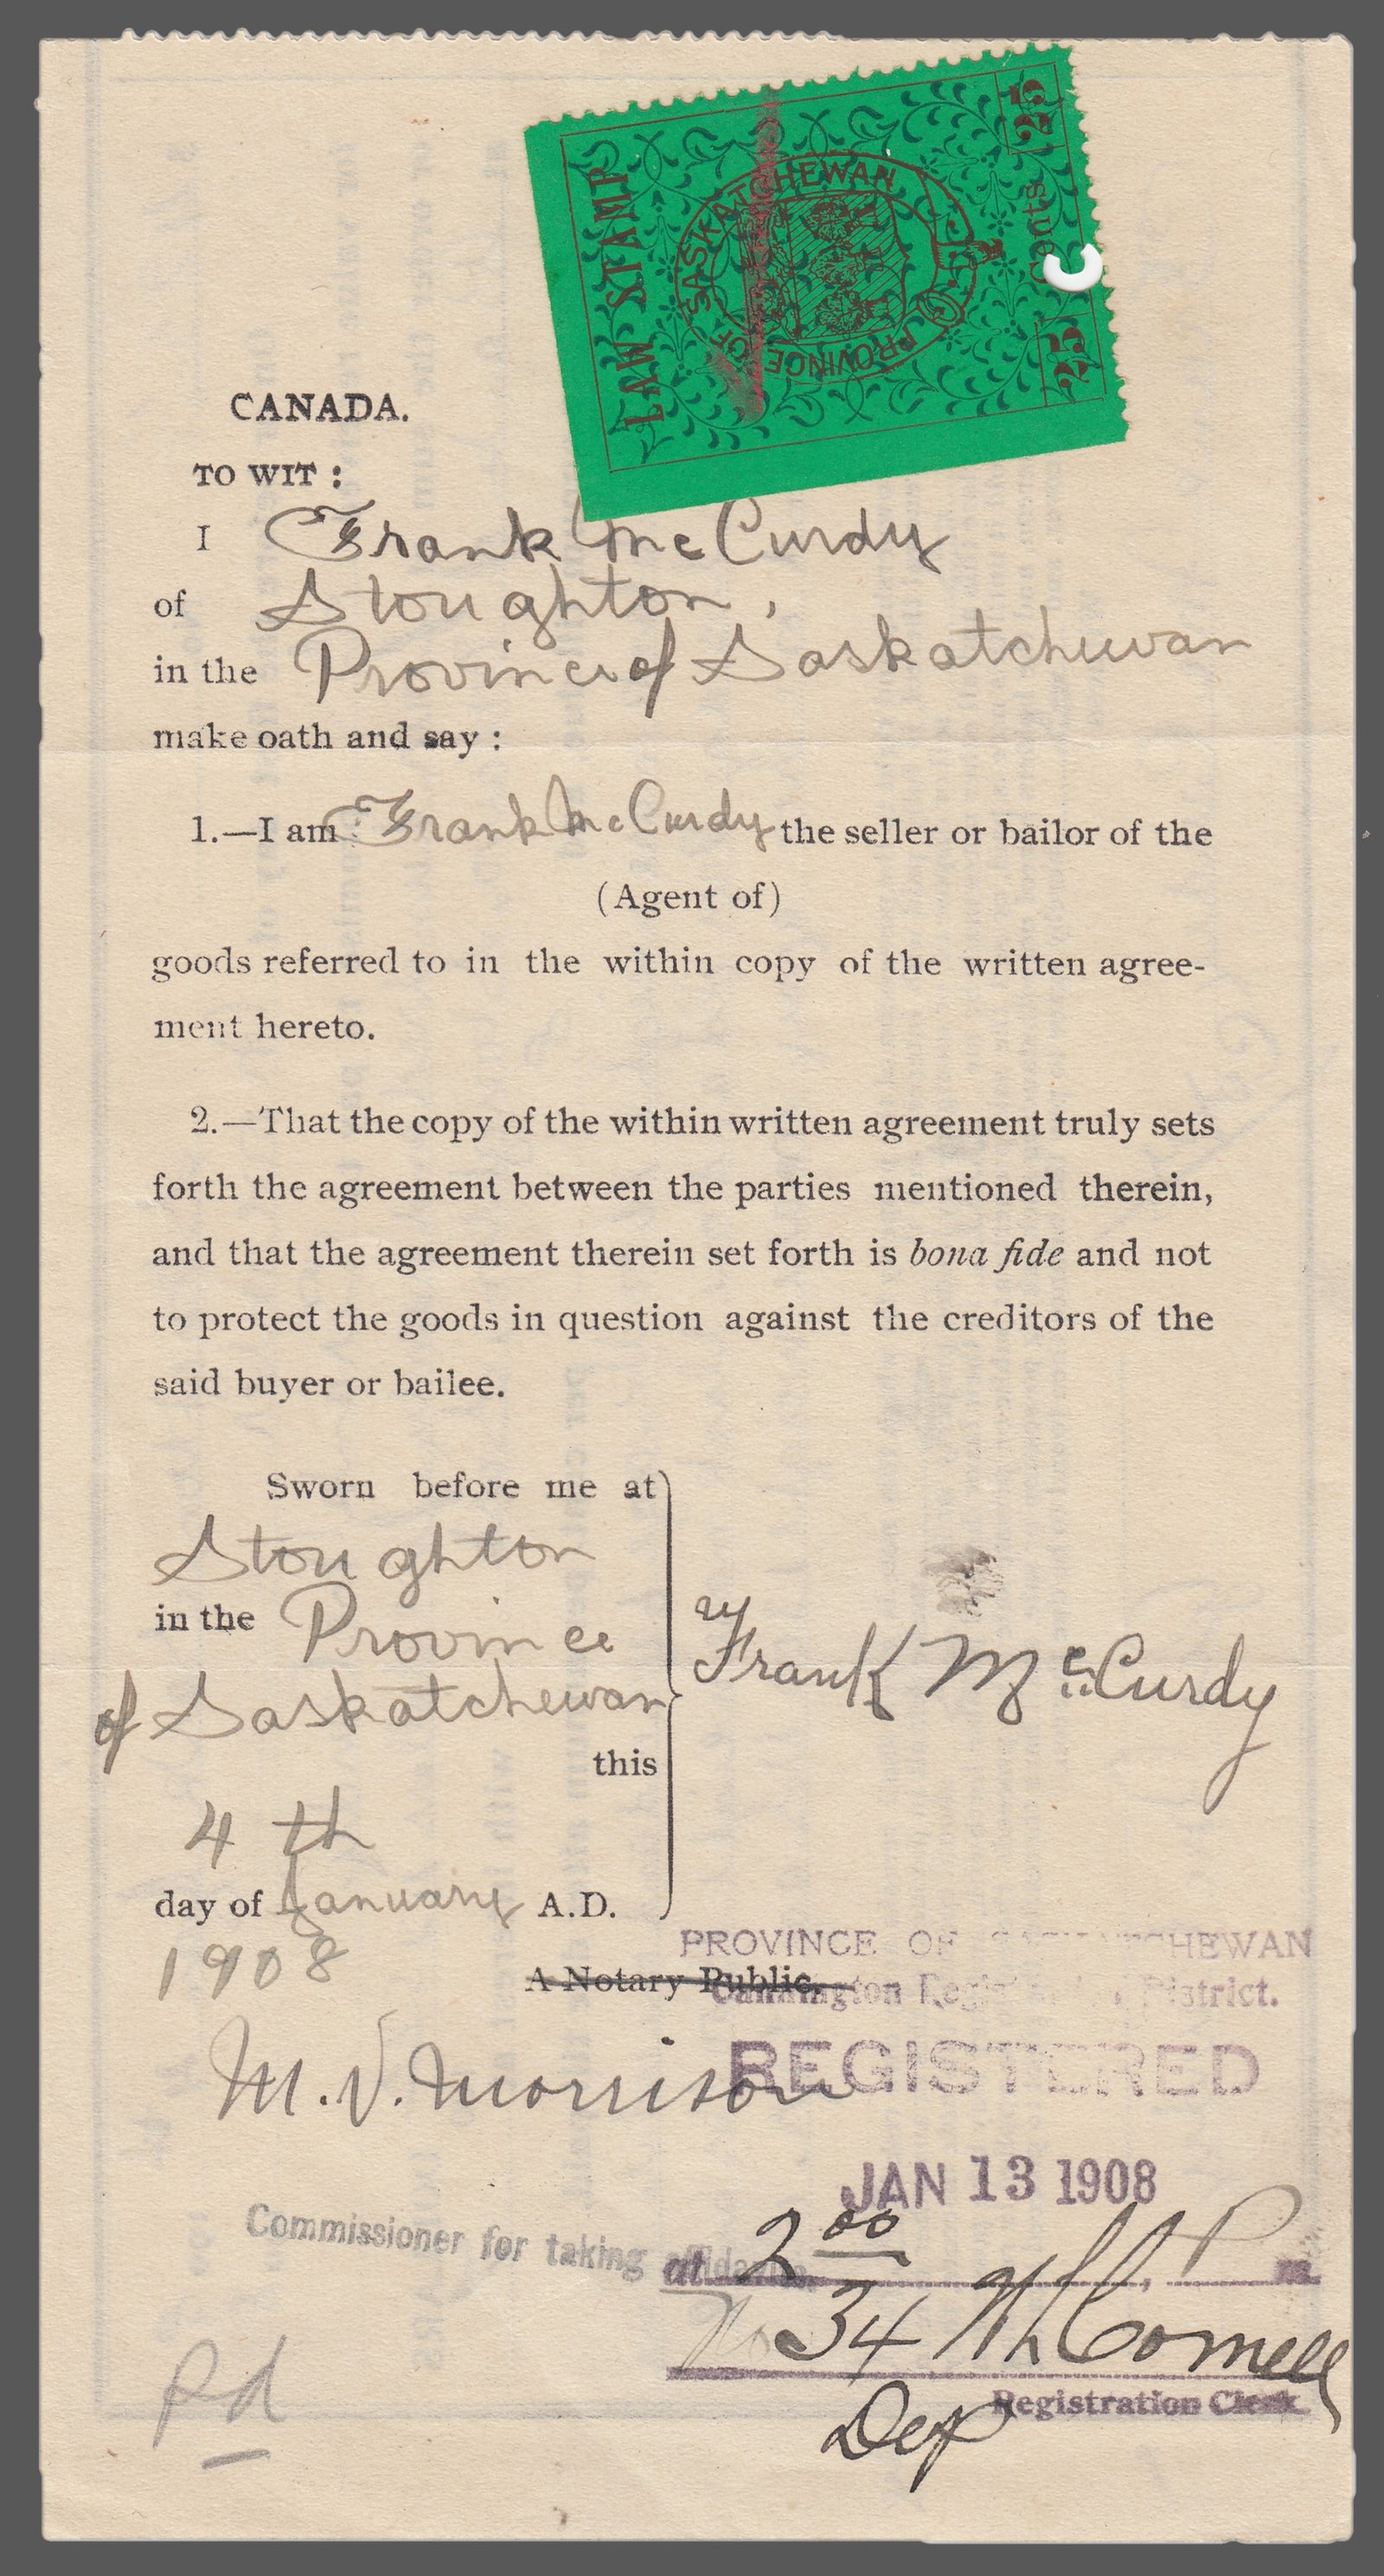 LAW STAMP
PROVINCE OF SASKATCHEWAN
25 cents 25
CANADA.
TO WIT :
I Frank McCurdy
of Stoughton,
in the Province of Saskatchewan
make oath and say :
1.—I am Frank McCurdy the seller or bailor of the
(Agent of)
goods referred to in the within copy of the written agree-
ment hereto.
2.—That the copy of the within written agreement truly sets
forth the agreement between the parties mentioned therein,
and that the agreement therein set forth is bona fide and not
to protect the goods in question against the creditors of the
said buyer or bailee.
Sworn before me at
Stoughton
in the Province
of Saskatchewan
this
4th
day of January A.D.
1908
Frank McCurdy
A Notary Public.
M. V. Morrison
PROVINCE OF SASKATCHEWAN
Cannington Registration District.
REGISTERED
JAN 13 1908
Commissioner for taking affidavits.
at 2 00, P m.
No 34
Registration Clerk.
Dep
Pd